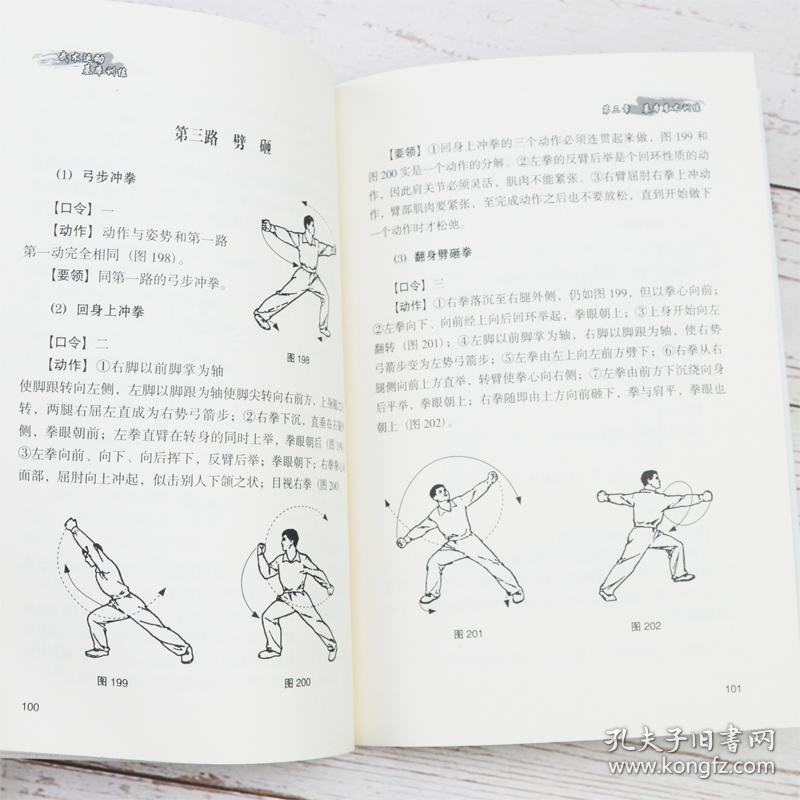 武术运动
基本训练
第三路 劈 砸
(1) 弓步冲拳
【口令】一
【动作】动作与姿势和第一路
第一动完全相同（图 198）。
【要领】同第一路的弓步冲拳。
(2) 回身上冲拳
图 198
【口令】二
【动作】①右脚以前脚掌为轴
使脚跟转向左侧，左脚以脚跟为轴使脚尖转向右前方，上身随之
转，两腿右屈左直成为右势弓箭步；②右拳下沉，直垂在右腿
侧，拳眼朝前；左拳直臂在转身的同时上举，拳眼朝后（图 199
③左拳向前、向下、向后挥下，反臂后举；拳眼朝下；右拳拳心
面部，屈肘向上冲起，似击别人下颌之状；目视右拳（图 200）。
图 199
图 200
100
第三章 基本拳术训练
【要领】①回身上冲拳的三个动作必须连贯起来做，图 199 和
图 200 实是一个动作的分解。②左拳的反臂后举是个回环性质的动
作，因此肩关节必须灵活，肌肉不能紧张。③右臂屈肘右拳上冲动
作，臂部肌肉要紧张，至完成动作之后也不要放松，直到开始做下
一个动作时才松弛。
(3) 翻身劈砸拳
【口令】三
【动作】①右拳落沉至右腿外侧，仍如图 199，但以拳心向前；
②左拳向下、向前经上向后回环举起，拳眼朝上；③上身开始向左
翻转（图 201）；④左脚以脚掌为轴，右脚以脚跟为轴，使右势
弓箭步变为左势弓箭步；⑤左拳由左上向左前方劈下；⑥右拳从右
腿侧向前上方直举，转臂使拳心向右侧；⑦左拳由前方下沉绕向身
后平举，拳眼朝上；右拳随即由上方向前砸下，拳与肩平，拳眼也
朝上（图 202）。
图 201
图 202
101
孔夫子旧书网
www.kongfz.com